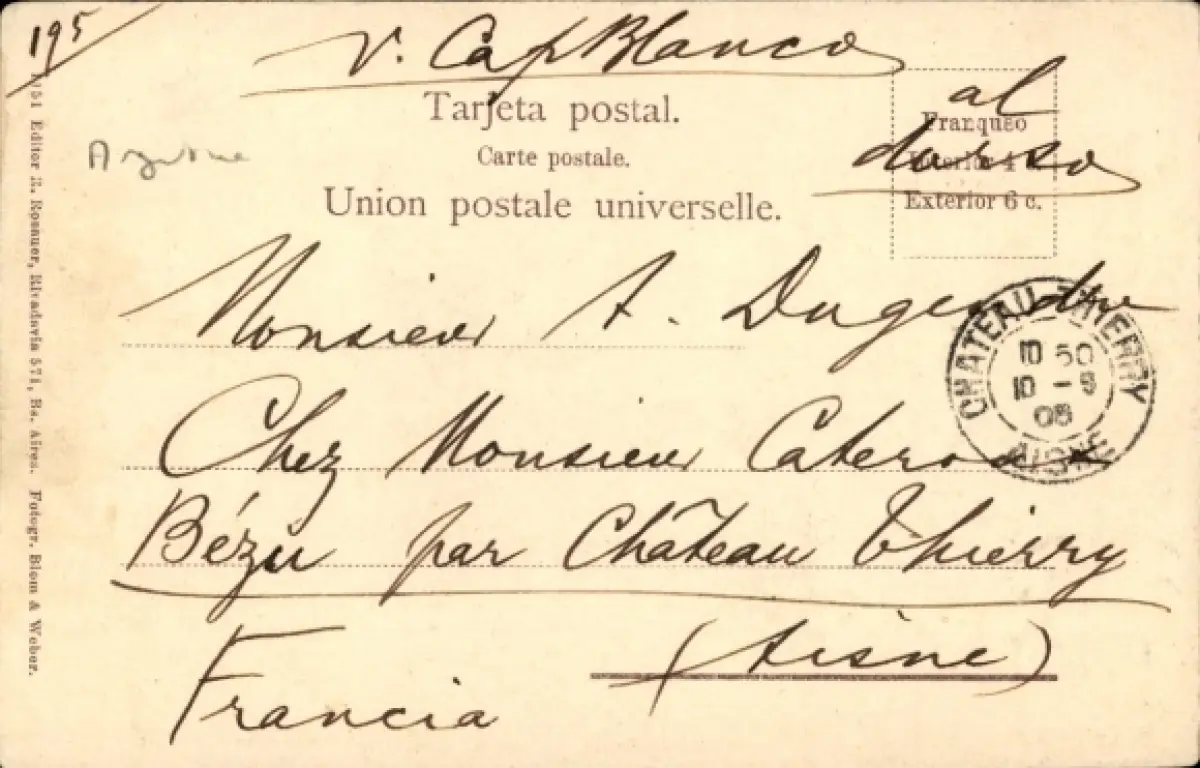 195
v. Cap Blanco
al
dorso
Tarjeta postal.
Carte postale.
Union postale universelle.
Franqueo
Interior 4 c.
Exterior 6 c.
Monsieur A. Dugendre
CHATEAU-THIERRY
10 50
10 - 8
08
AISNE
Chez Monsieur
Bézu par Château Thierry
(Aisne)
Francia
Editor R. Rosauer, Rivadavia 571, Bs. Aires. Fotogr. Blom & Weber.